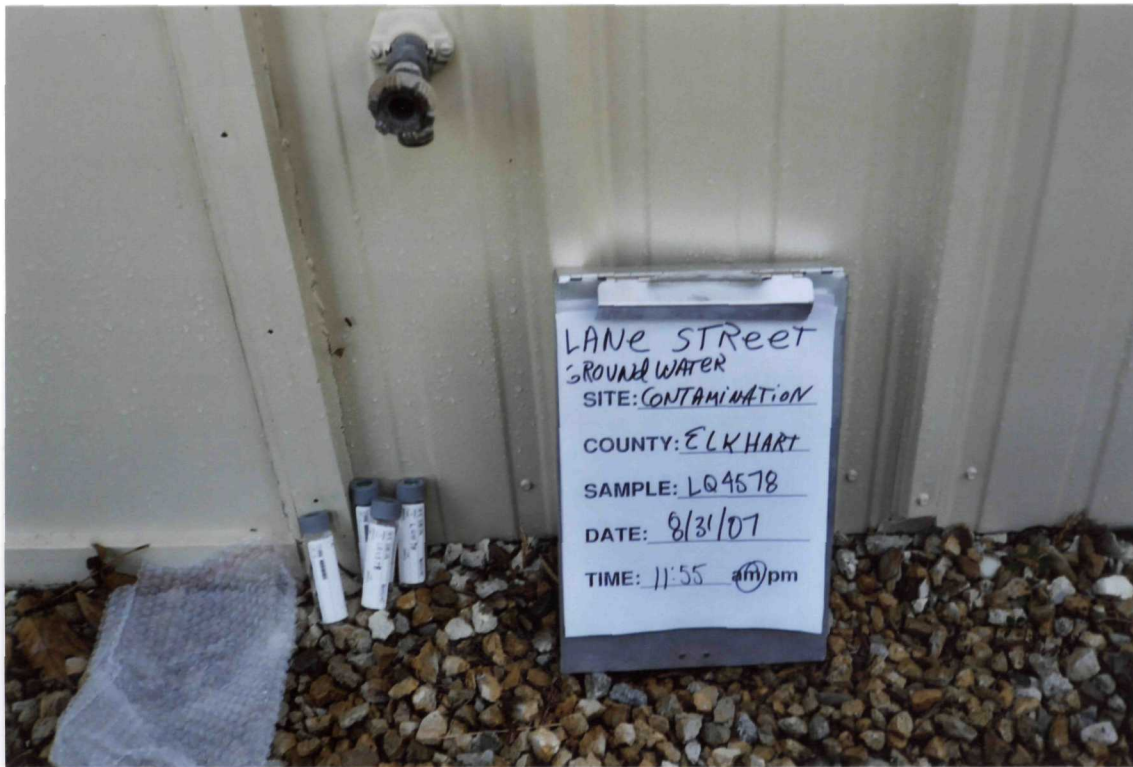 LANe STReeT
GROUNd WATER
SITE: CONTAMiNATiON
COUNTY: ELKHART
SAMPLE: LQ4578
DATE: 8/31/07
TIME: 11:55 am/pm